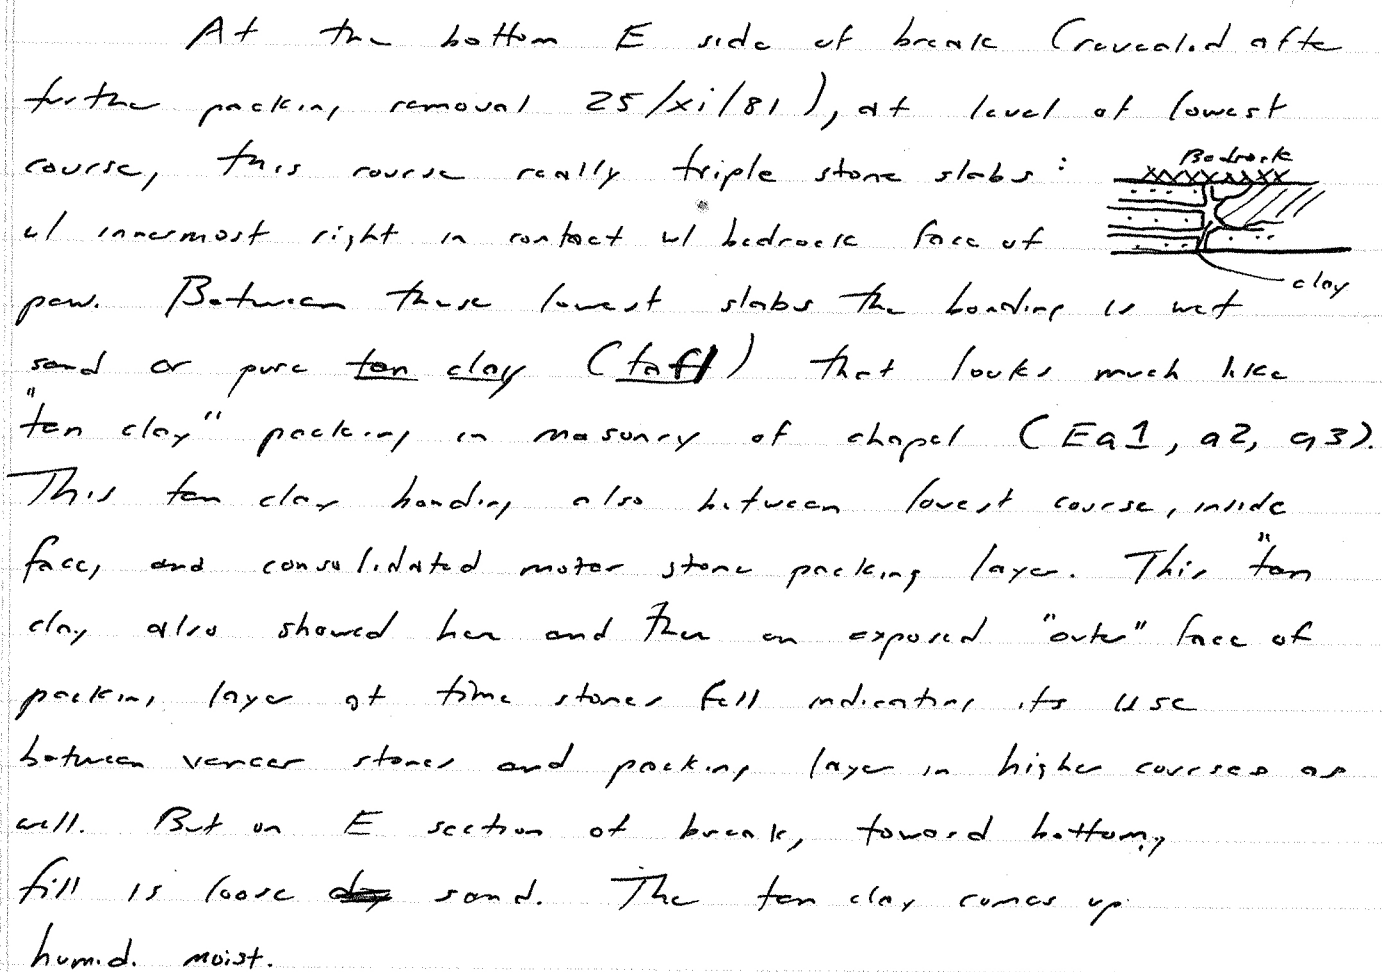 At the bottom E side of break (revealed after
further packing removal 25/xi/81), at level of lowest
course, this course really triple stone slabs:
Bedrock
w/ innermost right in contact w/ bedrock face of
clay
paw. Between these lowest slabs the bonding is wet
sand or pure tan clay (tafl) that looks much like
"tan clay" packing in masonry of chapel (Ea1, a2, a3).
This tan clay bonding also between lowest course, inside
face, and consolidated motar stone packing layer. This "tan
clay also showed her and ther on exposed "outer" face of
packing layer at time stones fell indicating its use
between veneer stones and packing layer in higher courses as
well. But on E section of break, toward bottom,
fill is loose sand. The tan clay comes up
humid. moist.